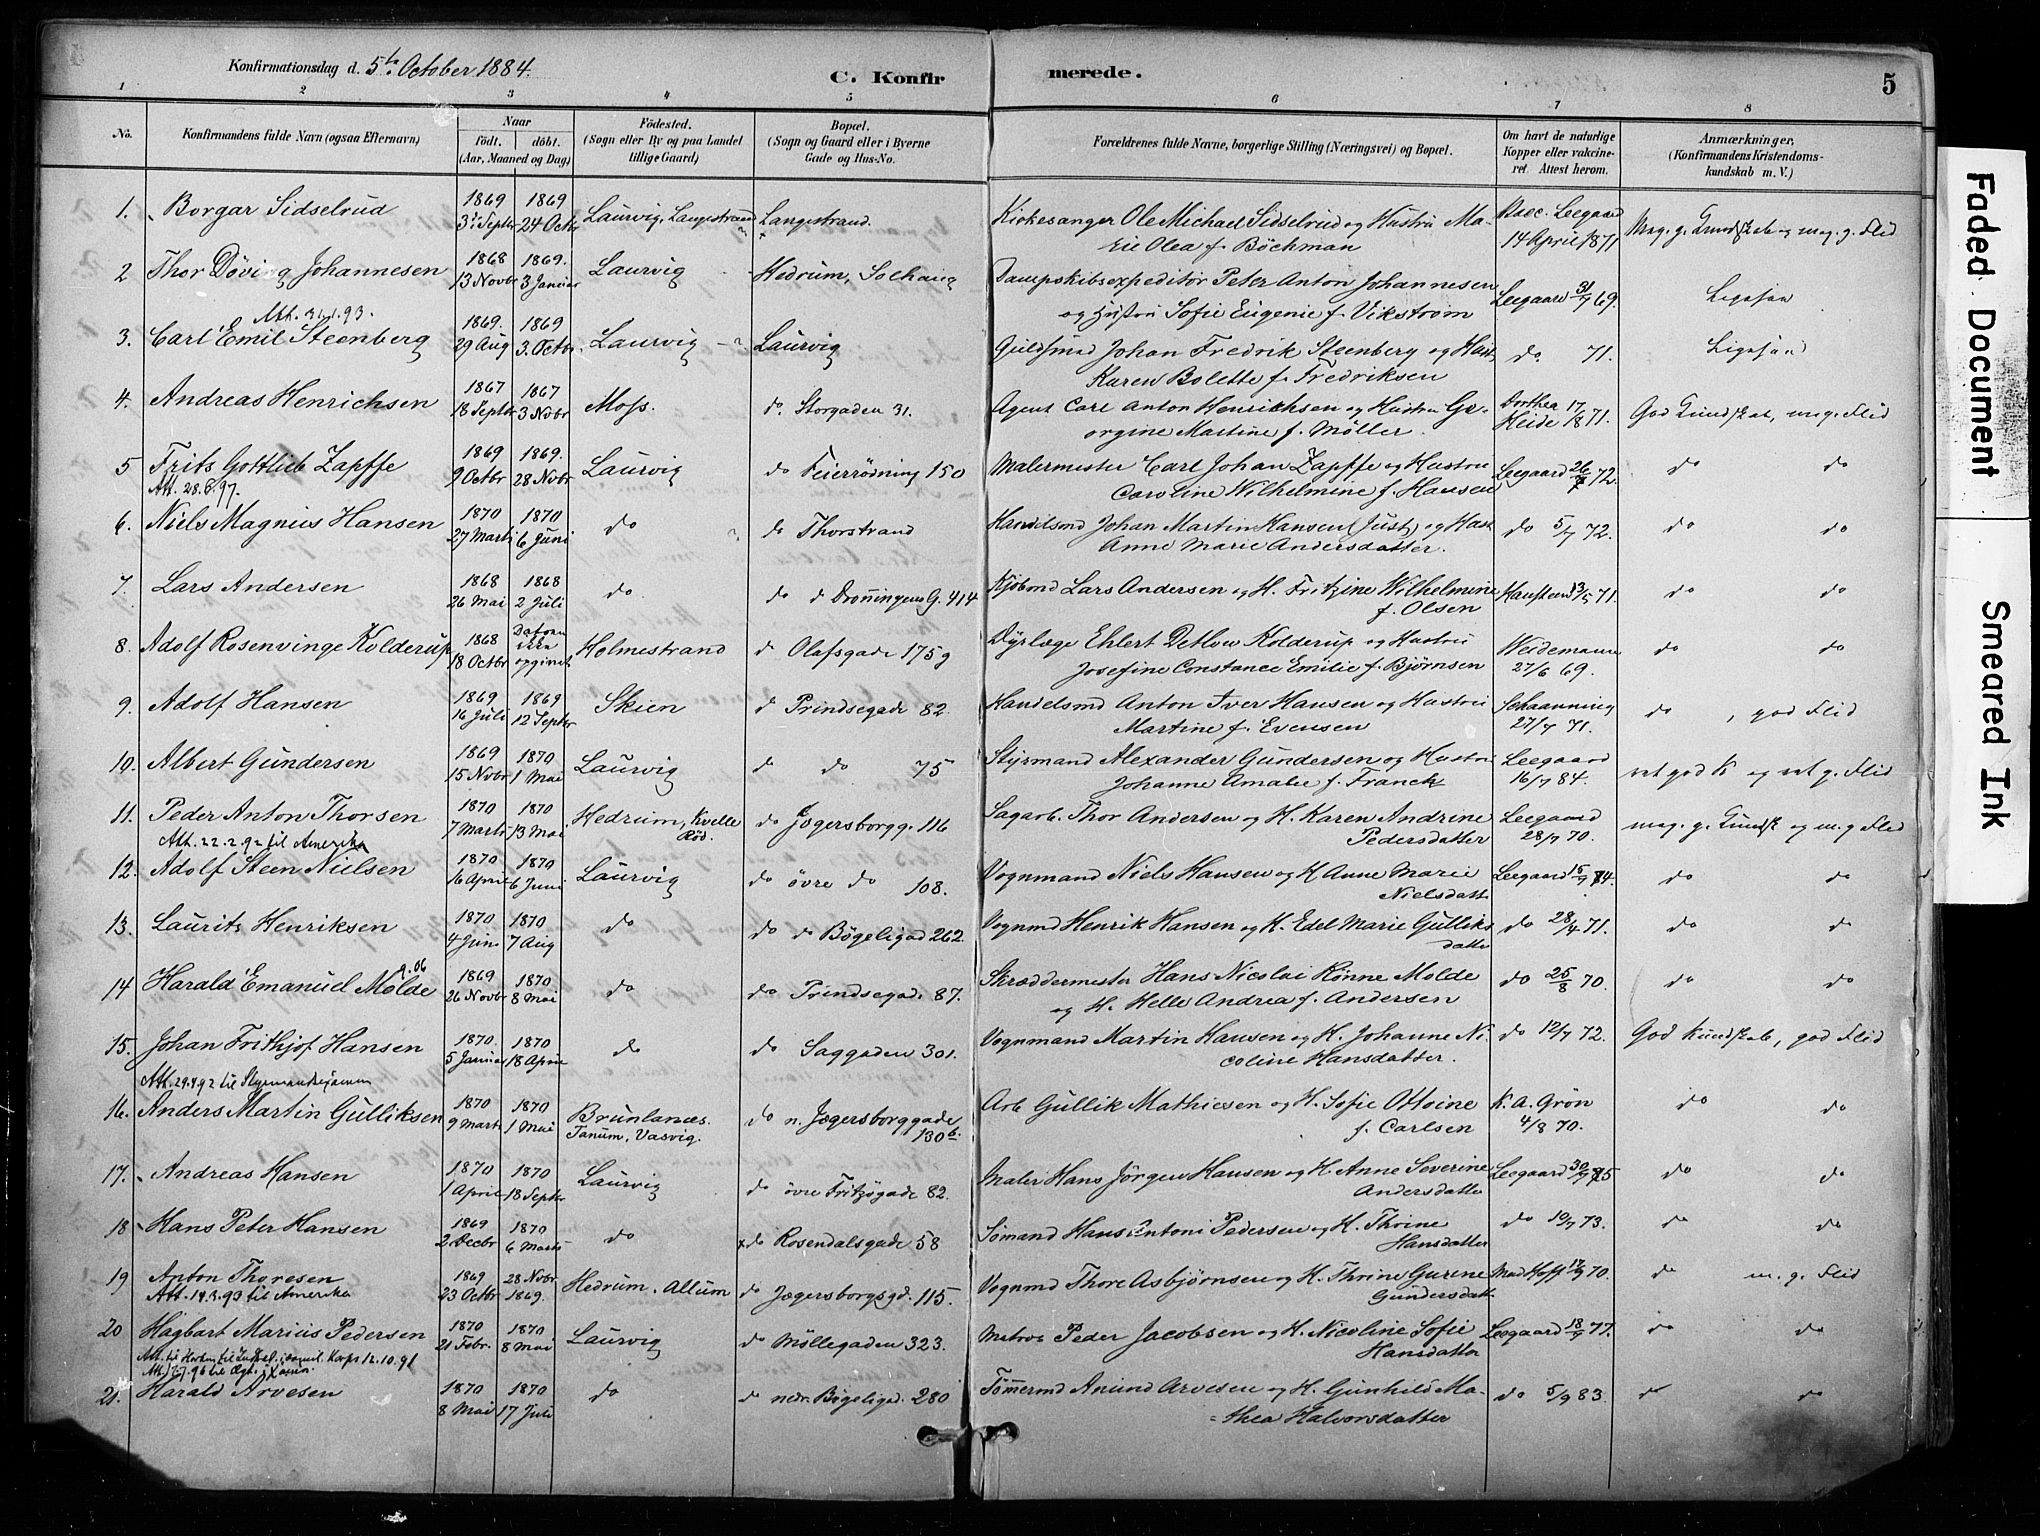 Konfirmationsdag d. 5te October 1884.
C. Konfirmerede.
5
1 2 3 4 5 6 7 8
No.
Konfirmandens fulde Navn (ogsaa Efternavn)
Naar
födt. döbt.
(Aar, Maaned og Dag)
Födested.
(Sogn eller By og paa Landet
tillige Gaard)
Bopæl.
(Sogn og Gaard eller i Byerne
Gade og Hus-No.
Forældrenes fulde Navne, borgerlige Stilling (Næringsvei) og Bopæl.
Om havt de naturlige
Kopper eller vakcine-
ret. Attest herom.
Anmærkninger,
(Konfirmandens Kristendoms-
kundskab m. V.)
1. Borgar Sidselrud 1869 3die Septbr 1869 24 Octbr Laurvig, Langestrand Langestrand. Kirkesanger Ole Michael Sidselrud og Hustru Ma-
rie Olea f. Böckman Vacc. Leegaard 14 April 1871 Meg. g. Kundskab og meg. g. Flid
2 Thor Döving Johannesen 1868 13 Novbr 1869. 3 Januar Laurvig Hedrum, Solhaug Dampskibsexpeditör Peter Anton Johannesen
og Hustru Sofie Eugenie f. Vikström Leegaard 31/7 69. Ligesaa
3. Carl Emil Steenberg 1869. 29 Aug 1869 3. Octbr. Laurvig Laurvig Guldsmed Johan Fredrik Steenberg og Hust.
Karen Bolette f. Fredriksen do 71. Ligesaa
4. Andreas Henrichsen 1867 18 Septbr 1867 3 Novbr Moss. do. Storgaden 31. Agent Carl Anton Henrichsen og Hustru Ge-
orgine Martine f. Möller. Dorthea Heide 17/8 71. God Kundskab, meg. Flid
5 Frits Gottlieb Zapffe 1869 9 Octbr 1869. 28 Novbr Laurvig do Feierrödning 150 Malermester Carl Johan Zapffe og Hustru
Att. 28.6.97. Caroline Wilhelmine f. Hansen Leegaard 72. do do
6. Niels Magnus Hansen 1870 27 Marts 1870 6 Juni do do Thorstrand Handelsmd Johan Martin Hansen (Just) og Hust
Anne Marie Andersdatter. do 5/7 72. do do
7. Lars Andersen 1868 26 Mai 1868 2 Juli do. do Dronningens G. 414 Kjöbmd Lars Andersen og H. Fritzine Wilhelmine
f. Olsen 71. do do
8. Adolf Rosenvinge Kolderup 1868 18 Octbr Datoen ikke opgivet Holmestrand do Olafsgade 175 Dyrlæge Ehlert Detlow Kolderup og Hustru
Josefine Constance Emilie f. Björnsen Weidemann 27/6 69. do do
9. Adolf Hansen 1869 16 Juli 1869 12 Septbr Skien do Prindsegade 82. Handelsmd Anton Iver Hansen og Hustru
Martine f. Evensen Schaanning 27/7 71. do, god Flid
10. Albert Gundersen 1869 15 Novbr 1870 1 Mai Laurvig do do 75 Styrmand Alexander Gundersen og Hustru
Johanne Amalie f. Franck Leegaard 16/7 84. ret god K og ret g. Flid
11. Peder Anton Thorsen 1870 7 Marts 1870 13 Mai Hedrum, Kvelle Röd. do Jægersborgg. 116 Sagarb. Thor Andersen og H. Karen Andrine
Att. 22.2.92 til Amerika Pedersdatter Leegaard 28/7 70. meg. g. Kundsk og m. g Flid
12. Adolf Steen Nielsen 1870 16 April 1870 6 Juni Laurvig do övre do 108. Vognmand Niels Hansen og H Anne Marie
Nielsdatt Leegaard do do
13. Laurits Henriksen 1870 4 Juni 1870 7 Aug do do Bögeligad 262. Vognmd Henrik Hansen og H. Edel Marie Gulliks
datter do 28/4 71. do do
14 Harald Emanuel Molde 1869 26 Novbr 1870 8 Mai do do Prindsegade 87. Skræddermester Hans Nicolai Könne Molde
og H. Helle Andrea f. Andersen do 25/8 70. do do
15. Johan Frithjof Hansen 1870. 5 Januar 1870 18 April do do Saggaden 301. Vognmand Martin Hansen og H. Johanne Ni-
Att. 29.4.92 til Styrmandsexamen coline Hansdatter. do 12/7 72. God Kundskab, god Flid
16. Anders Martin Gulliksen 1870 9 Marts 1870 1 Mai Brunlanæs. Tanum, Vasvig. do n. Jægersborggade 130 b. Arb Gullik Mathiesen og H. Sofie Ottoine
f. Carlsen K. A. Grön 4/8 70. do do
17. Andreas Hansen 1870 1 April 1870 18 Septbr Laurvig do övre Fritzögade 82. Maler Hans Jörgen Hansen og H. Anne Severine
Andersdatter Leegaard do do
18 Hans Peter Hansen 1869 2 Decbr 1870 6 Marts do do Rosendalsgade 58 Sömand Hans Antoni Pedersen og H. Thrine
Hansdatter do 10/7 73. do do
19 Anton Thoresen 1869 23 Octbr 28 Novbr 1869. Hedrum, Allum do Jægersborgsgd. 115. Vognmd Thore Asbjörnsen og H. Thrine Gurine
Att. 14.3.93 til Amerika Gundersdatt. 70. do m. g. Flid
20 Hagbart Marius Pedersen 1870 21 Febr. 1870 8 Mai Laurvig do Möllegaden 323. Matros Peder Jacobsen og H. Nicoline Sofie
Hansdatter Leegaard 18/9 77. do do
21. Harald Arvesen 1870 8 Mai 1870 17 Juli do do nedr. Bögeligad. 280 Tömermd Anund Arvesen og H. Gunhild Ma-
thea Halvorsdatter do 5/9 83. do do
Faded Document
Smeared Ink